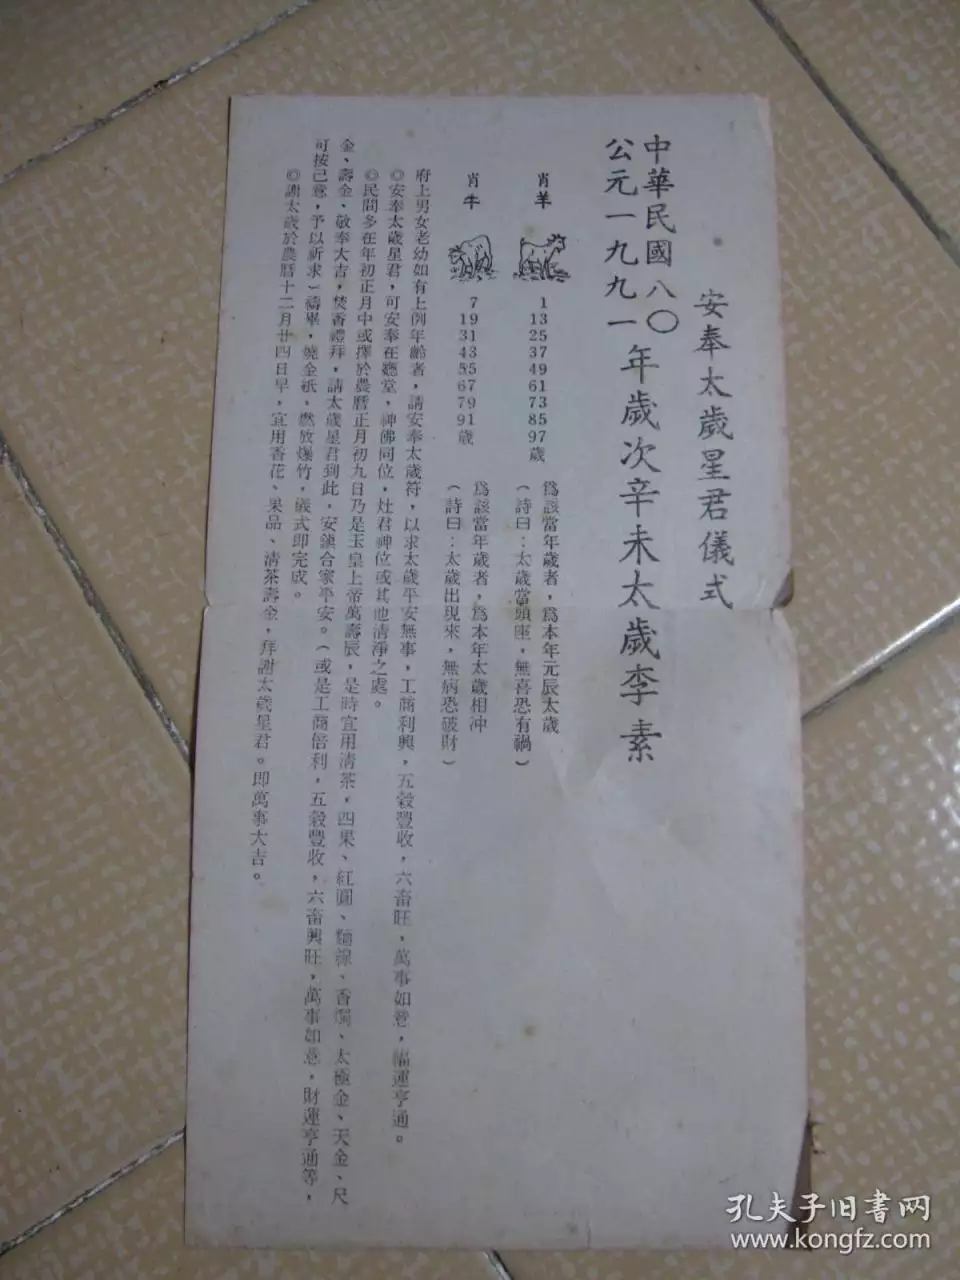 安奉太歲星君儀式
中華民國八〇
公元一九九一年歲次辛未太歲李素
肖羊
1 13 25 37 49 61 73 85 97歲
為該當年歲者，為本年元辰太歲
（詩曰：太歲當頭座，無喜恐有禍）
肖牛
7 19 31 43 55 67 79 91歲
為該當年歲者，為本年太歲相冲
（詩曰：太歲出現來，無病恐破財）
府上男女老幼如有上例年齡者，請安奉太歲符，以求太歲平安無事，工商利興，五穀豐收，六畜旺，萬事如意，福運亨通。
◎安奉太歲星君，可安奉在廳堂，神佛同位，灶君神位或其他清淨之處。
◎民間多在年初正月中或擇於農曆正月初九日乃是玉皇上帝萬壽辰，是時宜用清茶，四果、紅圓、麵線、香燭、太極金、天金、尺
金、壽金、敬奉大吉，焚香禮拜，請太歲星君到此，安鎮合家平安。（或是工商倍利，五穀豐收，六畜興旺，萬事如意，財運亨通等，
可按己意，予以祈求）禱畢，燒金紙，燃放爆竹，儀式即完成。
◎謝太歲於農曆十二月廿四日早，宜用香花、果品、清茶壽金，拜謝太歲星君。即萬事大吉。
孔夫子旧书网
www.kongfz.com